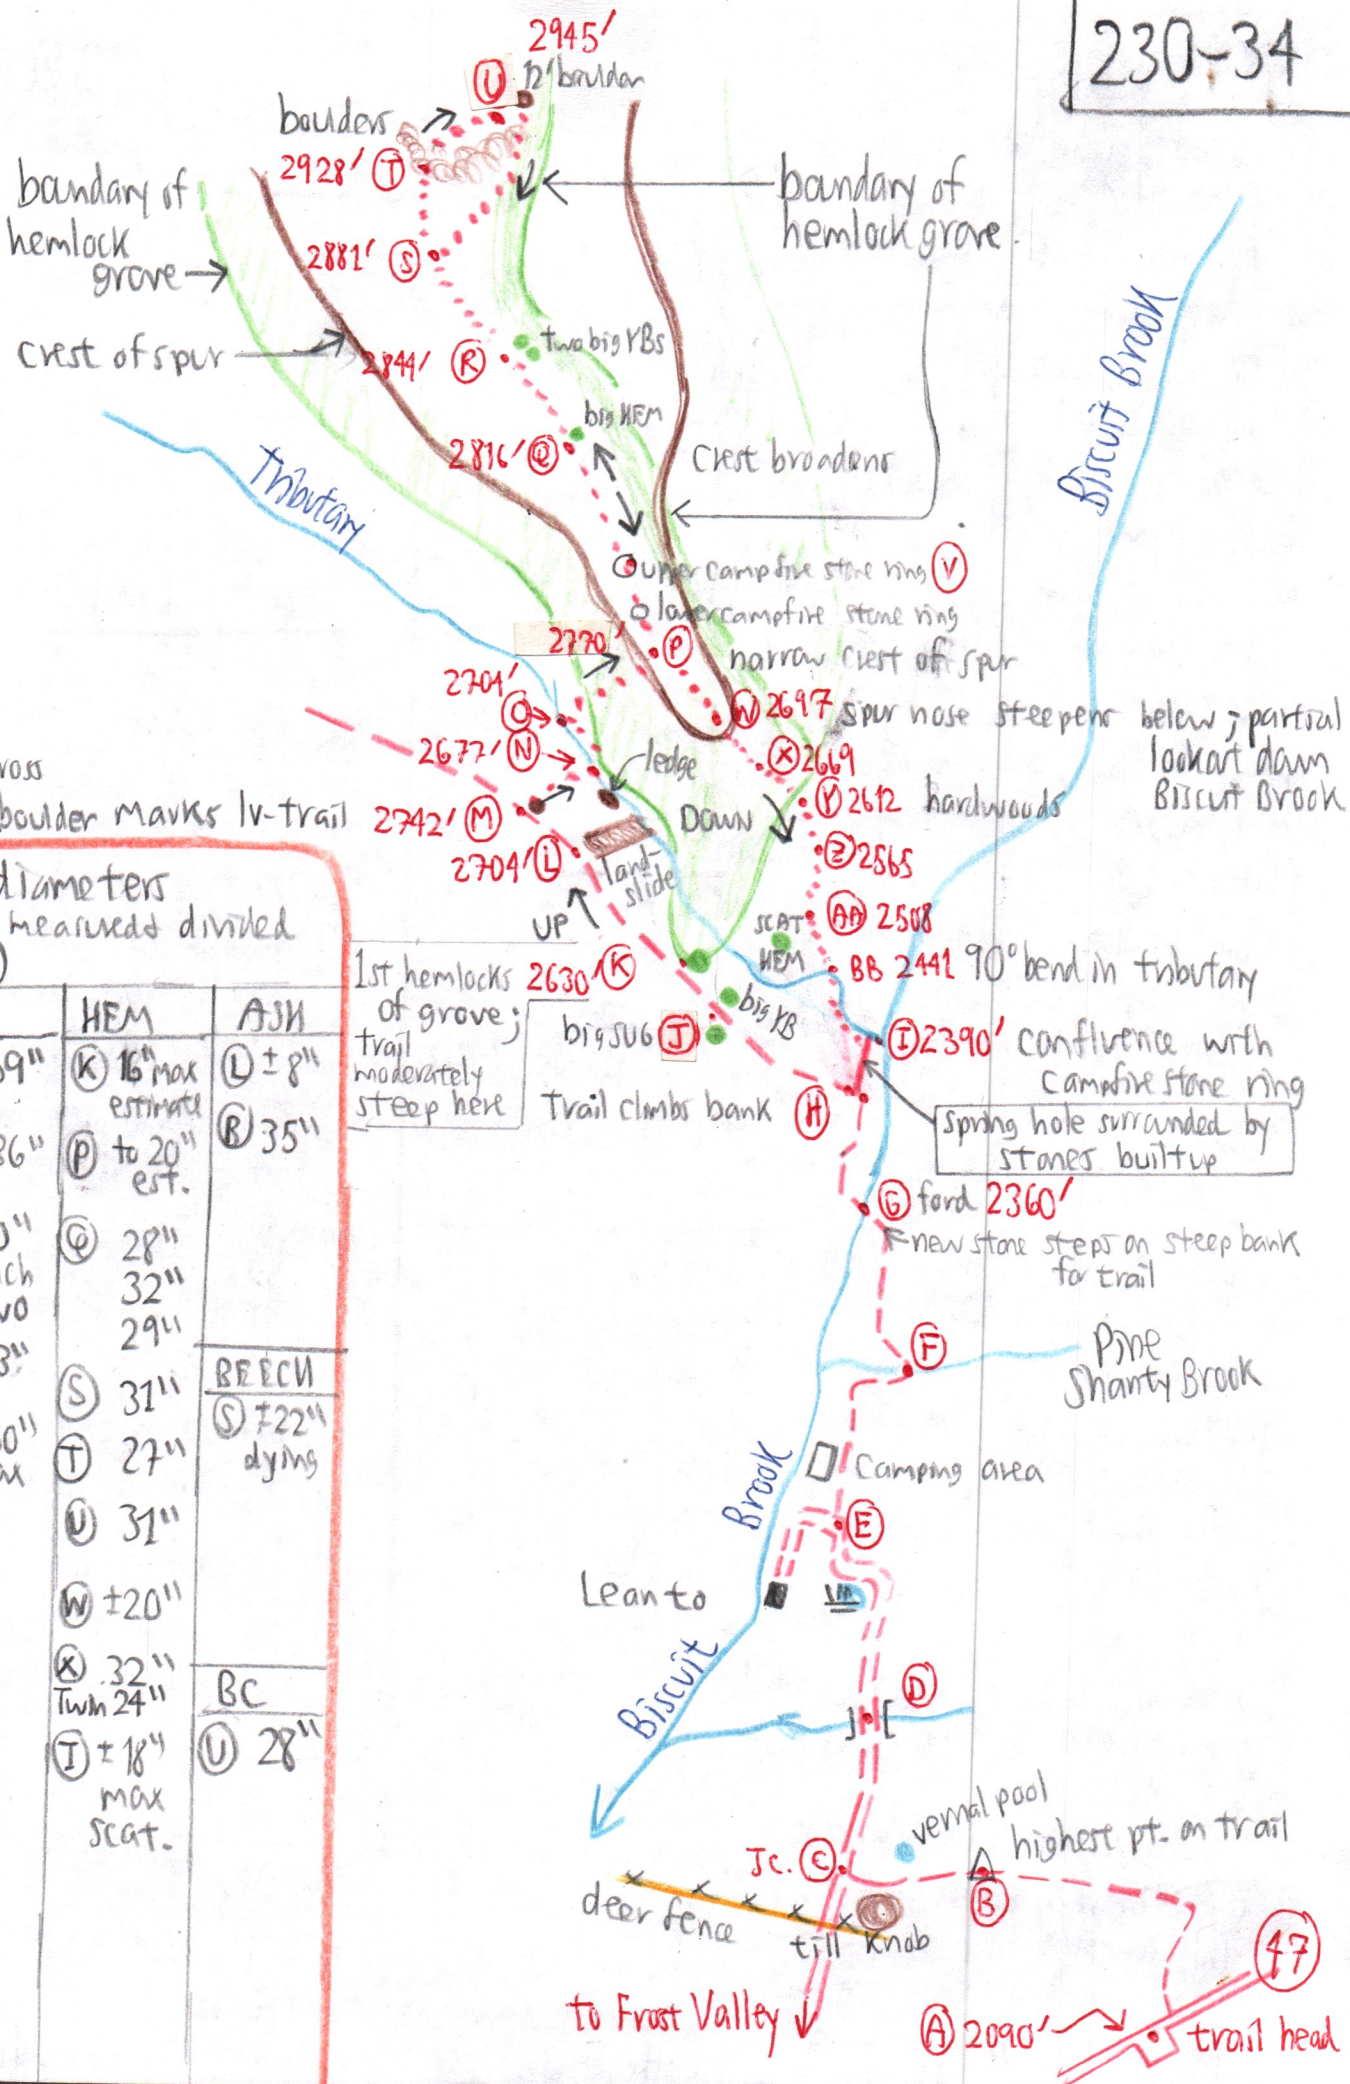 230-34
2945'
U 12' boulder
boulders
2928' T
boundary of
hemlock
grove
boundary of
hemlock grove
2881' S
crest of spur
two big YBs
2844' R
Biscuit Brook
big HEM
2816' Q
Crest broadens
Tributary
upper campfire stone ring V
lower campfire stone ring
2770'
P
narrow crest of spur
2701'
O
W 2697 spur nose steepens below; partial
lookout down
Biscuit Brook
2677' N
ledge
X 2669
Y 2612 hardwoods
boulder marks lv-trail
2742' M
DOWN
2704' L
land-
slide
Z 2565
UP
SCAT
HEM
AA 2508
BB 2441 90° bend in tributary
1st hemlocks
of grove;
trail
moderately
steep here
2630' K
big YB
big SUG J
I 2390' confluence with
campfire stone ring
Trail climbs bank H
spring hole surrounded by
stones built up
G ford 2360'
new stone steps on steep bank
for trail
F
Pine
Shanty Brook
Camping area
E
Lean to
Biscuit Brook
D
vernal pool
highest pt. on trail
Jc. C
B
deer fence
till Knob
47
to Frost Valley
A 2090'
trail head
diameters
measured & divided
HEM
K 16" max
estimate
P to 20"
est.
Q 28"
32"
29"
S 31"
T 27"
U 31"
W ±20"
X 32"
Twin 24"
I ±18"
max
scat.
ASH
L ±8"
R 35"
BEECH
S ±22"
dying
BC
U 28"